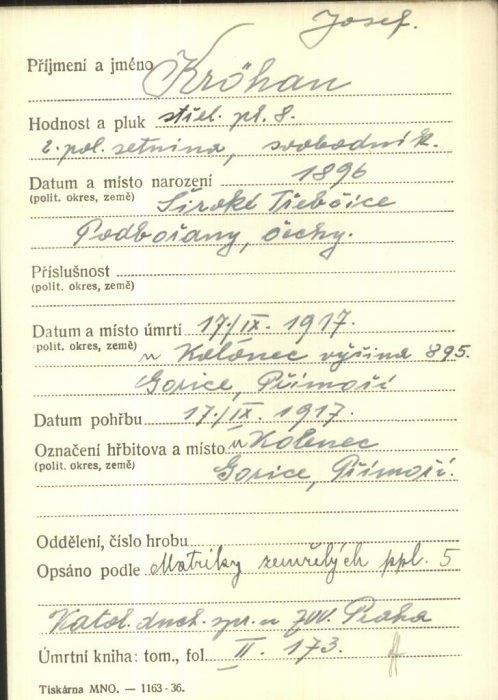 Josef.
Příjmení a jméno Kröhan
Hodnost a pluk střel. pl. 8.
2. pol. setnina, svobodník.
Datum a místo narození 1896
(polit. okres, země) Široké Třebčice
Podbořany, Čechy.
Příslušnost
(polit. okres, země)
Datum a místo úmrtí 17./IX. 1917.
(polit. okres, země) u Kalonec výšina 895.
Gorice, Přímoří
Datum pohřbu 17./IX. 1917.
Označení hřbitova a místo u Kolenec
(polit. okres, země) Gorice, Přímoří.
Oddělení, číslo hrobu
Opsáno podle Matriky zemřelých ppl. 5
Katol. duch. spr. u ZVV. Praha
Úmrtní kniha: tom., fol. II. 173.
Tiskárna MNO. — 1163-36.